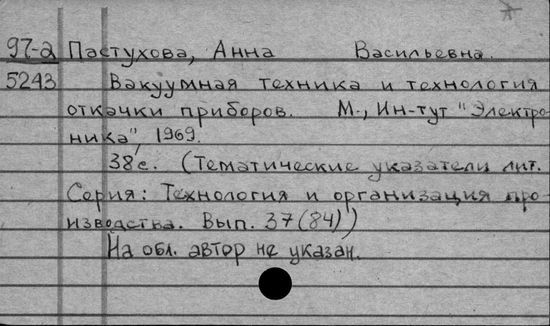 97-2 Пастухова, Анна Васильевна.
5243 Вакуумная техника и технология
откачки приборов. М., Ин-тут "Электро-
ника", 1969.
38с. (Тематические указатели лит.
Серия: Технология и организация про-
изводства. Вып. 37(84))
На обл. автор не указан.